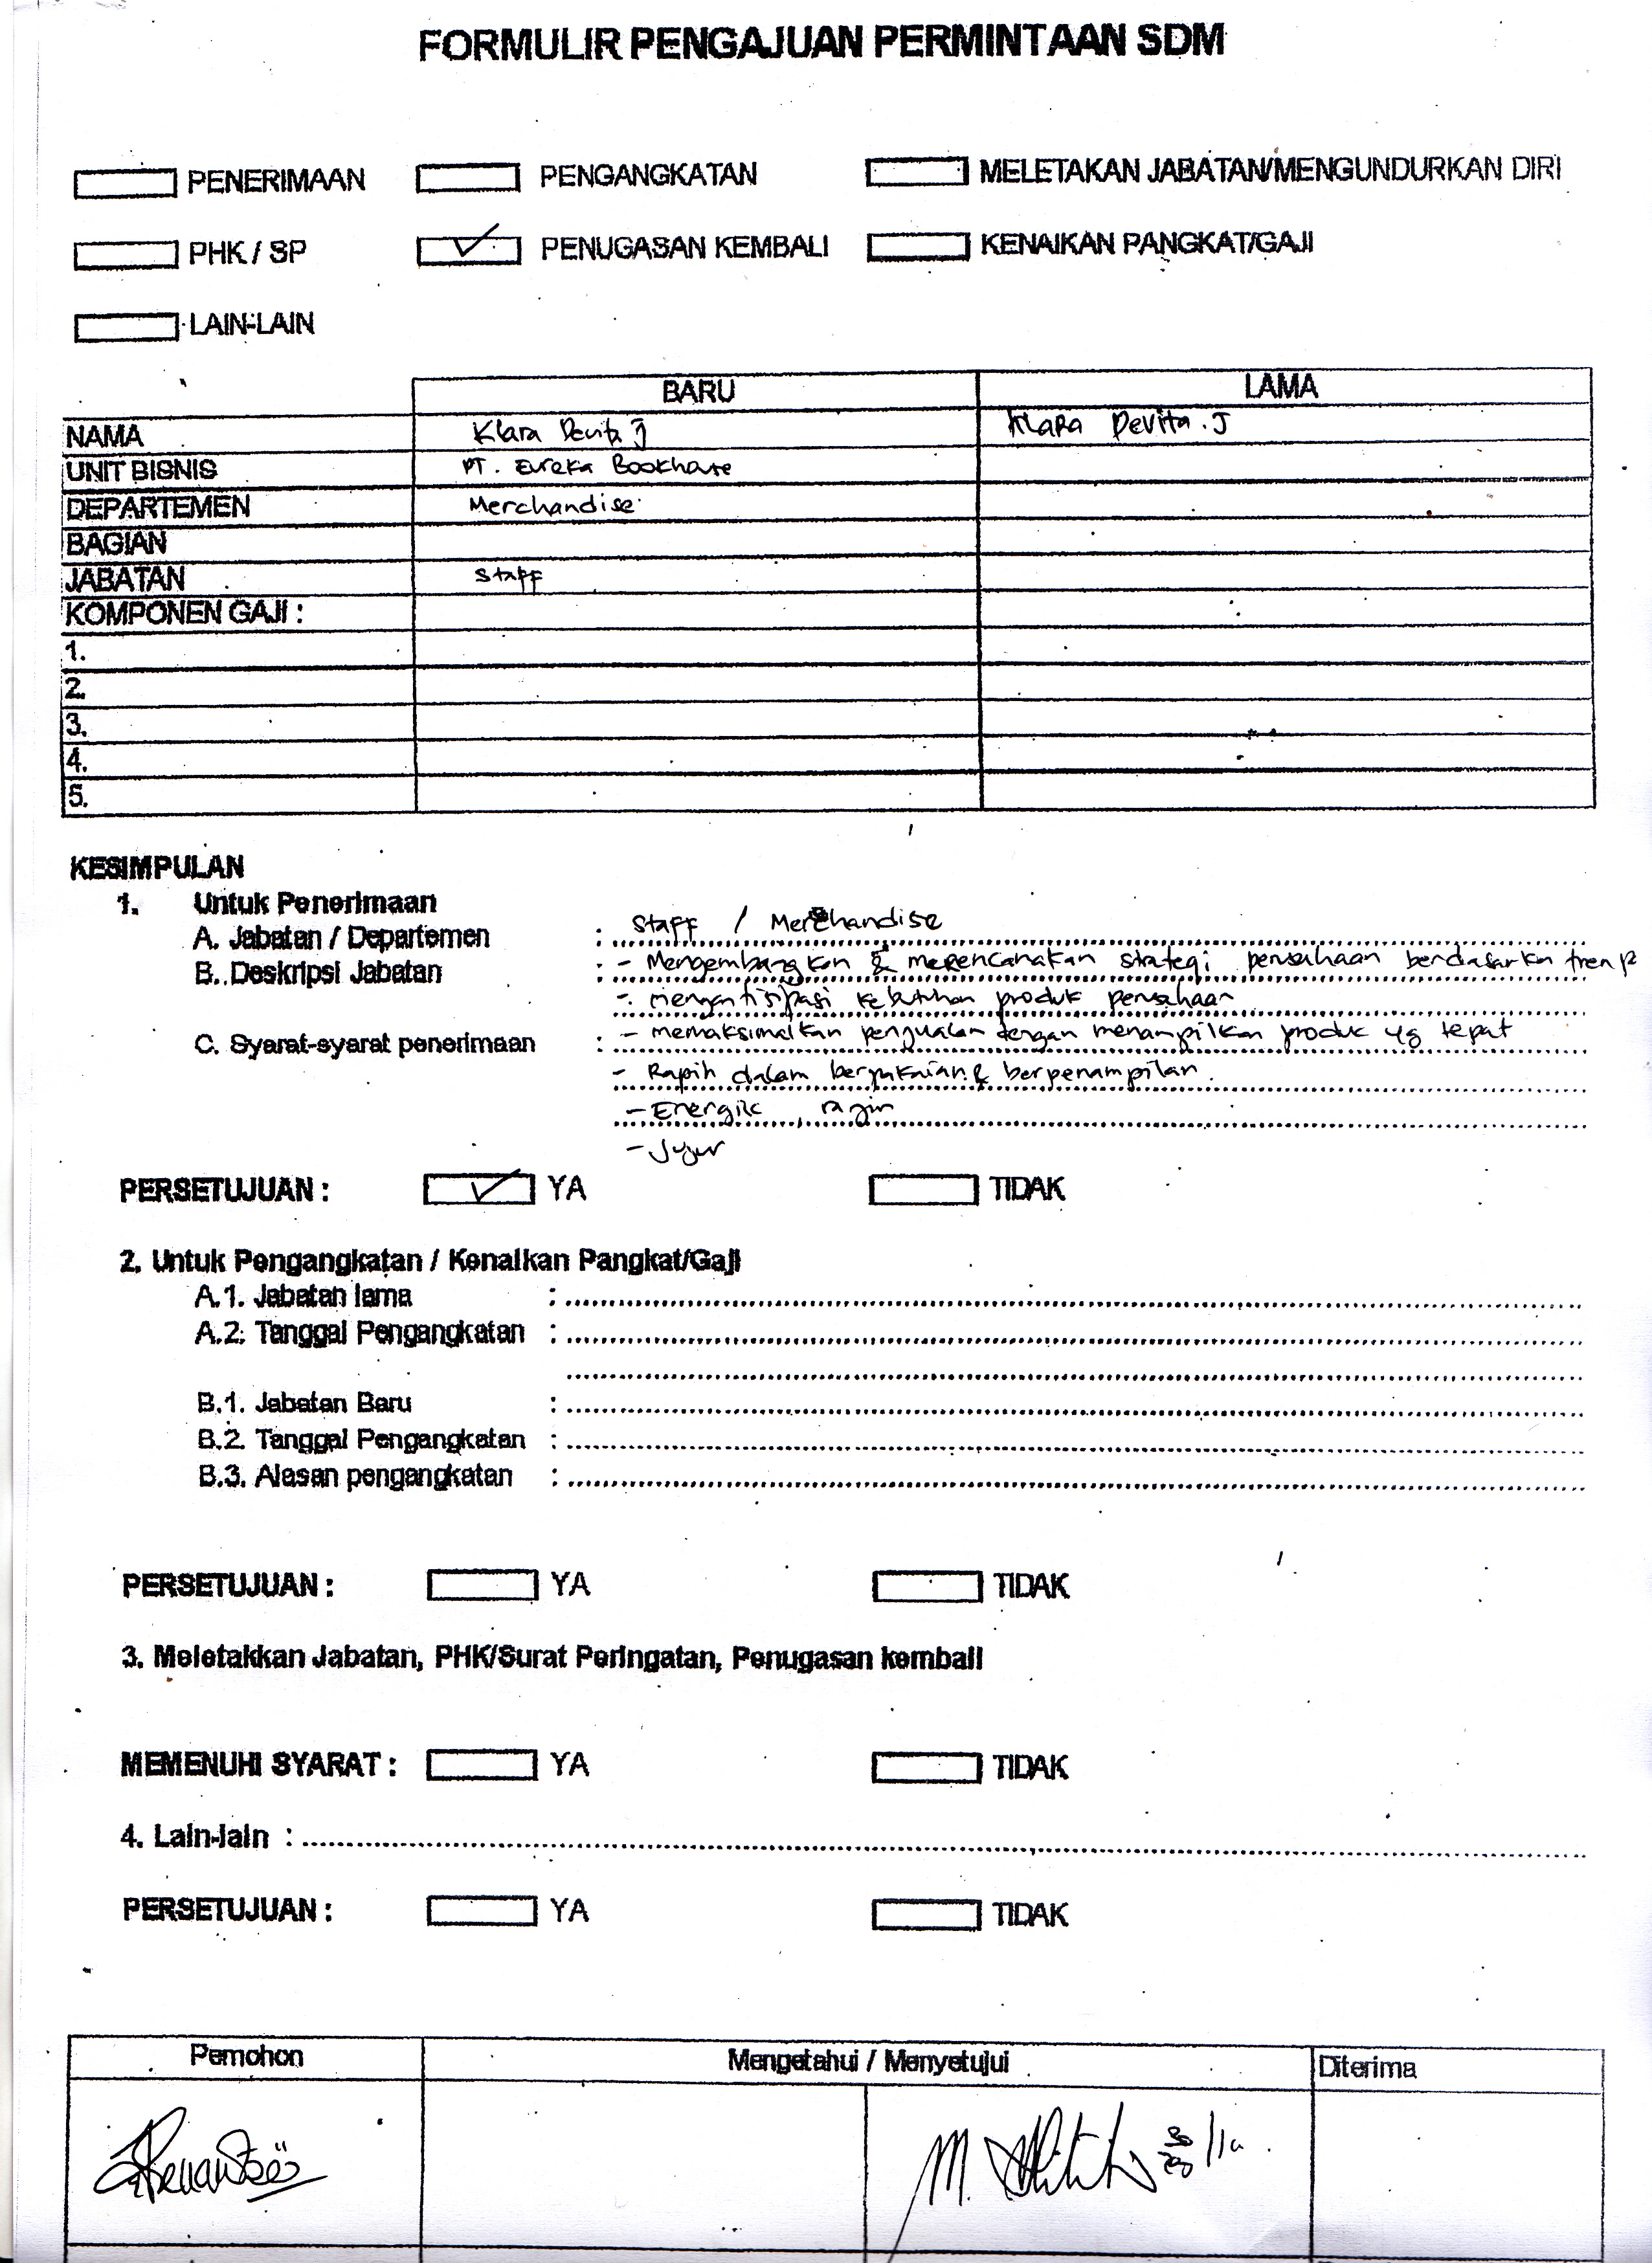 FORMULIR PENGAJUAN PERMINTAAN SDM
PENERIMAAN PENGANGKATAN MELETAKAN JABATAN/MENGUNDURKAN DIRI
PHK / SP PENUGASAN KEMBALI KENAIKAN PANGKAT/GAJI
LAIN-LAIN
BARU LAMA
NAMA Klara Devita J Klara Devita . J
UNIT BISNIS PT. Eureka Bookhouse
DEPARTEMEN Merchandise
BAGIAN
JABATAN Staff
KOMPONEN GAJI :
1.
2.
3.
4.
5.
KESIMPULAN
1. Untuk Penerimaan
A. Jabatan / Departemen : Staff / Merchandise
B. Deskripsi Jabatan : - Mengembangkan & merencanakan strategi perusahaan berdasarkan
- mengantisipasi kebutuhan produk perusahaan
C. Syarat-syarat penerimaan : - memaksimalkan penjualan dengan menampilkan produk yg tepat
- Rapih dalam berpakaian & berpenampilan.
- Energik, rajin
- Jujur
PERSETUJUAN : YA TIDAK
2. Untuk Pengangkatan / Kenaikan Pangkat/Gaji
A.1. Jabatan lama :
A.2. Tanggal Pengangkatan :
B.1. Jabatan Baru :
B.2. Tanggal Pengangkatan :
B.3. Alasan pengangkatan :
PERSETUJUAN : YA TIDAK
3. Meletakkan Jabatan, PHK/Surat Peringatan, Penugasan kembali
MEMENUHI SYARAT : YA TIDAK
4. Lain-lain :
PERSETUJUAN : YA TIDAK
Pemohon Mengetahui / Menyetujui Diterima